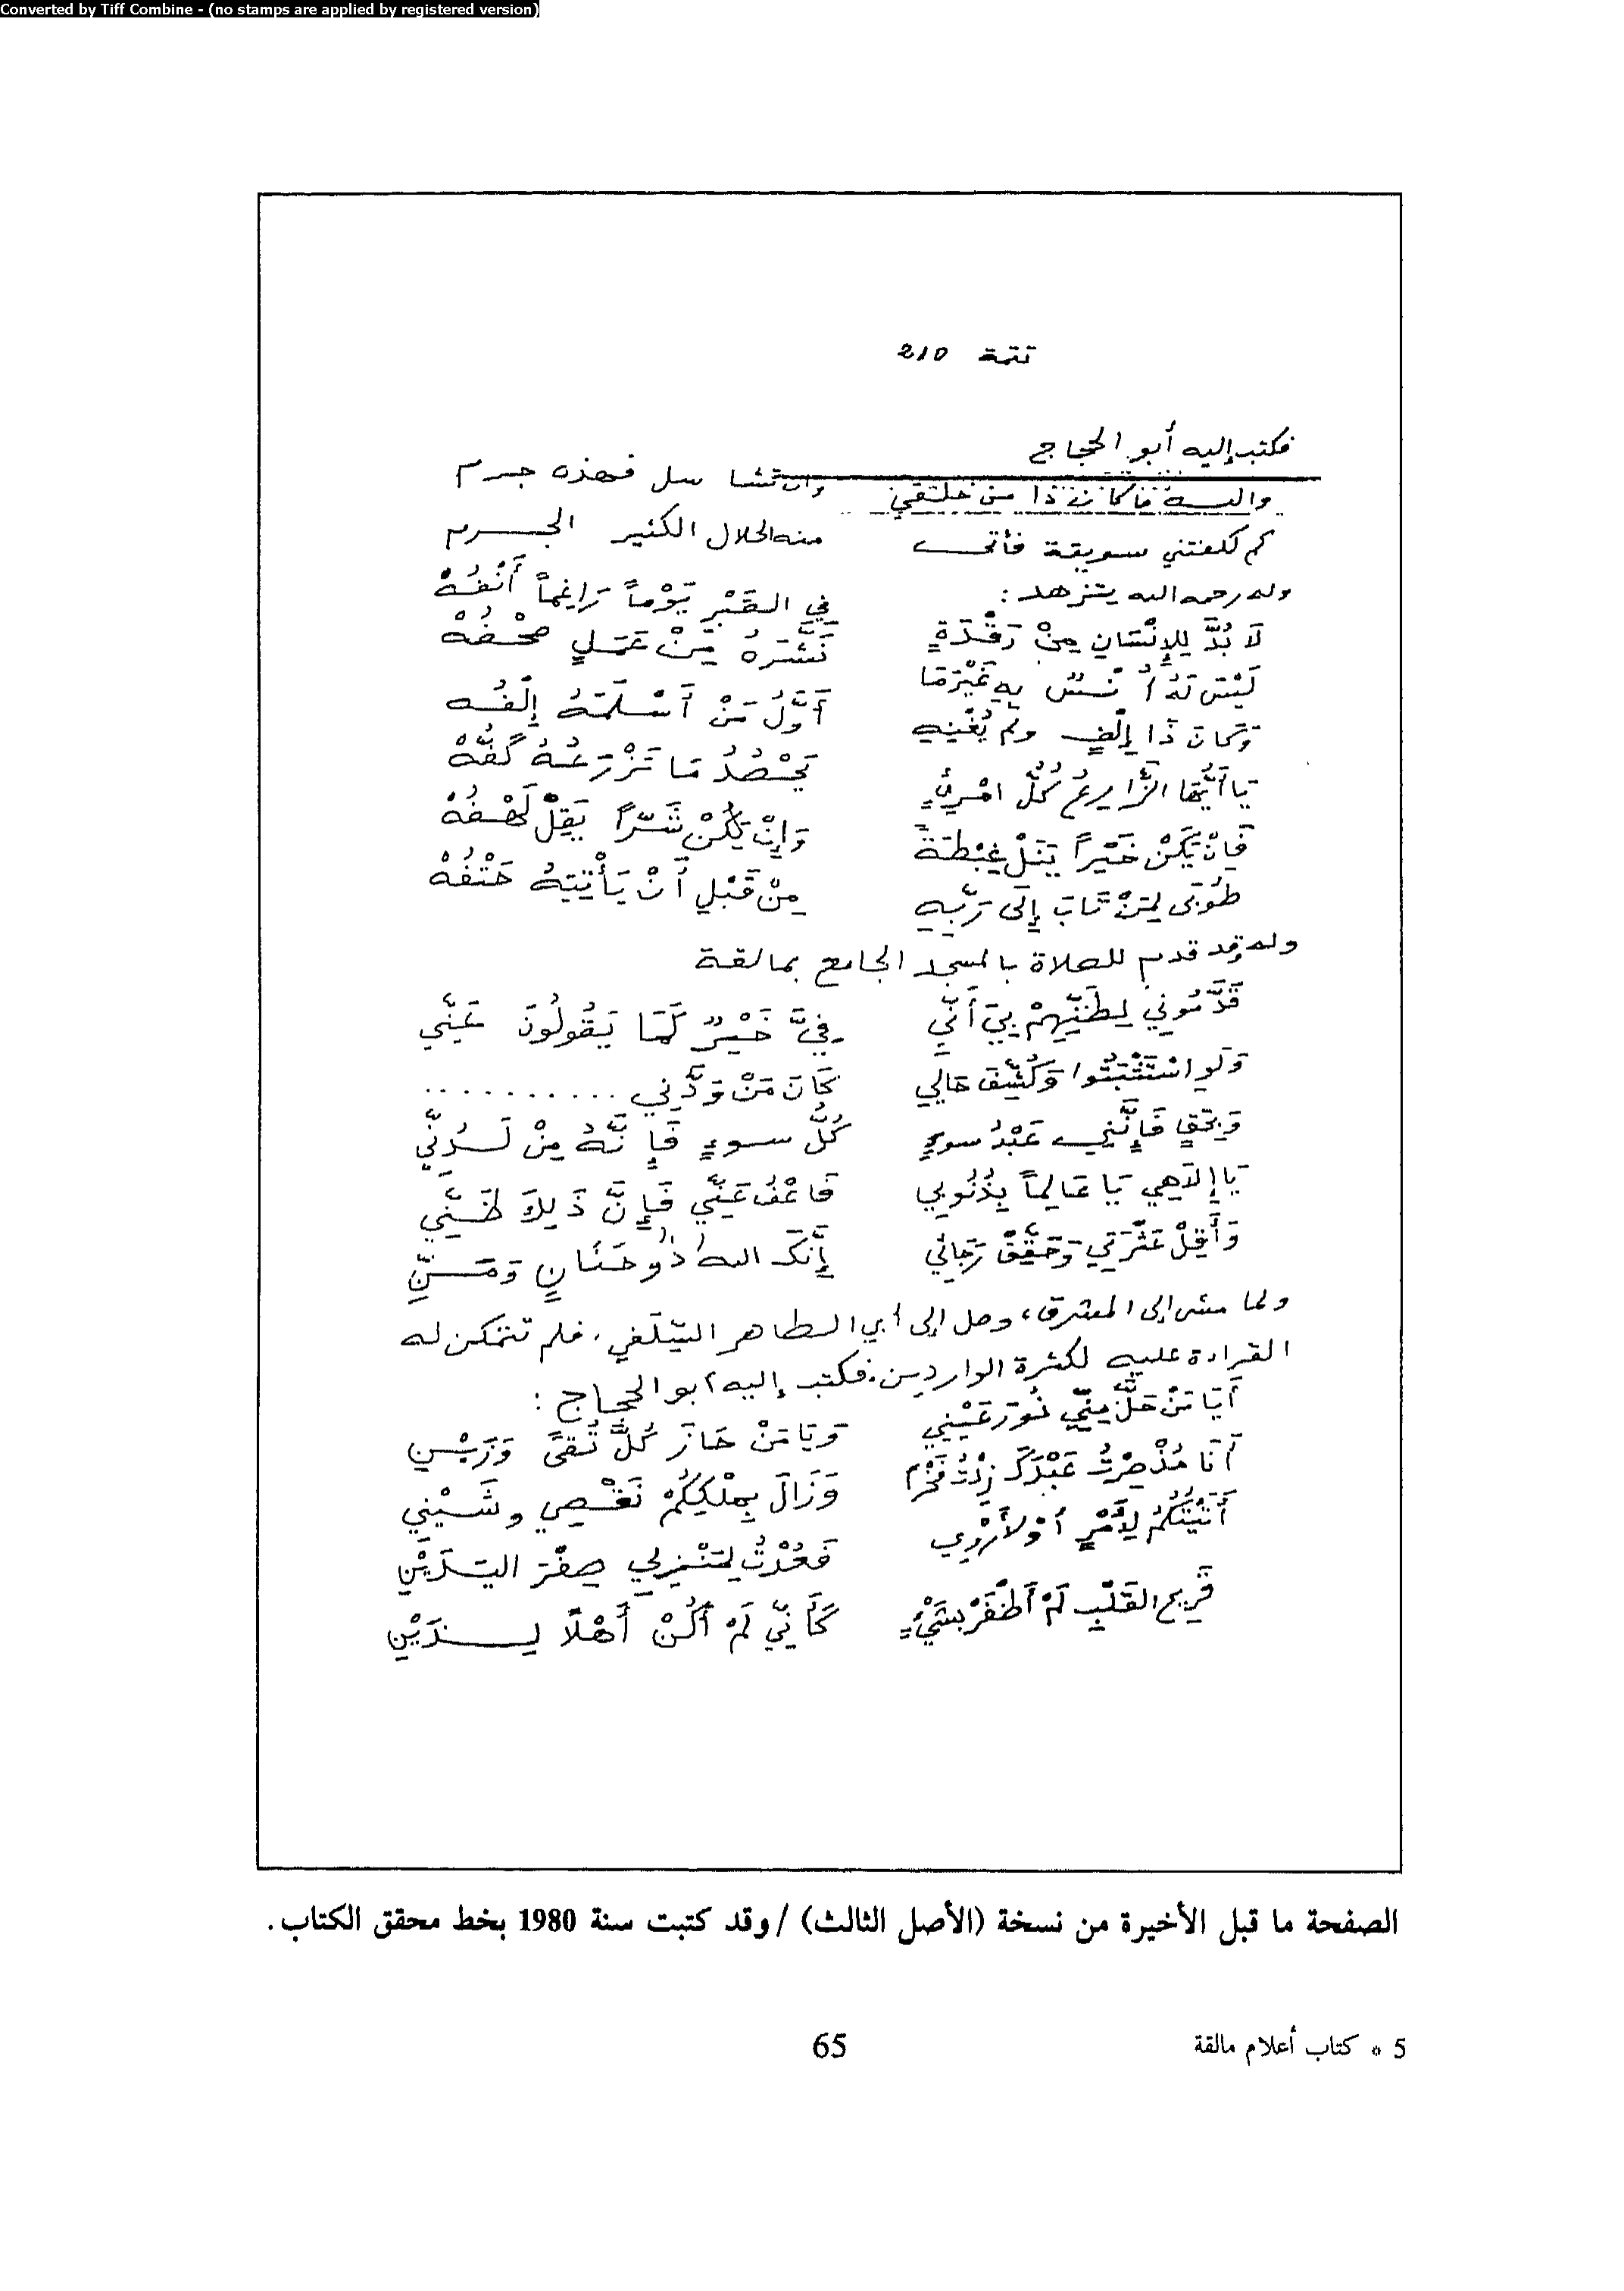 Converted by Tiff Combine - (no stamps are applied by registered version)
تتمة 210
فكتب إليه أبو الحجاج
والله ما كان ذا من خلقي وان تشا سل فهذه جرم
كم كلفتني سويقة فأتى منه الحلال الكثير الجرم
وله رحمه الله يتزهد :
لَا بُدَّ لِلإِنْسَانِ مِنْ رَقْدَةٍ فِي القَبْرِ يَوْماً رَاغِماً أَنْفُهْ
لَيْسَ لَهُ أُنْسٌ بِهِ غَيْرَمَا نَشَرَهُ مِنْ عَمَلٍ صُحْفُهْ
وَكَانَ ذَا إِلْفٍ وَلَمْ يُغْنِهِ أَوَّلُ مَنْ أَسْلَمَهُ إِلْفُه
يَا أَيُّهَا الزَّارِعُ كُلُّ امْرِئٍ يَحْصُدُ مَا تَزْرَعُهُ كَفُّهْ
فَإِنْ يَكُنْ خَيْراً يَنَلْ غِبْطَةً وَإِنْ يَكُنْ شَرّاً يَقِلْ لَهْفُهْ
طُوبَى لِمَنْ تَابَ إِلَى رَبِّهِ مِنْ قَبْلِ أَنْ يَأْتِيَهُ حَتْفُهْ
وله وقد قدم للصلاة بالمسجد الجامع بمالقة
قَدَّمُونِي لِظَنِّهِمْ بِيَ أَنِّي فِيَّ خَيْرٌ كَمَا يَقُولُونَ عَنِّي
وَلَوِ اسْتَثْبَتُوا وَكُشِّفَ حَالِي كَانَ مَنْ وَدَّنِي ..........
وَبِحَقٍ فَإِنَّنِي عَبْدُ سوءٍ كُلُّ سوءٍ فَإِنَّهُ مِنْ لَدُنِّي
يَا إِلَهِي يَا عَالِماً بِذُنُوبِي فَاعْفُ عَنِّي فَإِنَّ ذَلِكَ ظَنِّي
وَأَقِلْ عَثْرَتِي وَحَقِّقْ رَجَائِي إِنَّكَ اللهُ ذُو حَنَانٍ وَمَنِّ
ولما مشى إلى المشرق، وصل إلى أبي الطاهر السِّلَفي، فلم تتمكن له
القراءة عليه لكثرة الواردين. فكتب إليه أبو الحجاج :
أَيَا مَنْ حَلَّ مِنِّي نُورَ عَيْنِي وَيَا مَنْ حَازَ كُلَّ تُقىً وَزَيْنِ
أَنَا مُذْ صِرْتُ عَبْدَكَ زِدْتُ فَخْراً وَزَالَ بِمِلْكِكُمْ نَقْصِي وشَيْنِي
أَتَيْتُكُمُ لِأَقْرَأَ أَوْ لأَرْوِي فَعُدْتُ لِمَنْزِلِي صِفْرَ اليَدَيْنِ
قَرِيحَ القَلْبِ لَمْ أَظْفَرْ بِشَيْءٍ كَأَنِّي لَمْ أَكُنْ أَهْلاً لِذَيْنِ
الصفحة ما قبل الأخيرة من نسخة (الأصل الثالث) / وقد كتبت سنة 1980 بخط محقق الكتاب.
5 * كتاب أعلام مالقة
65